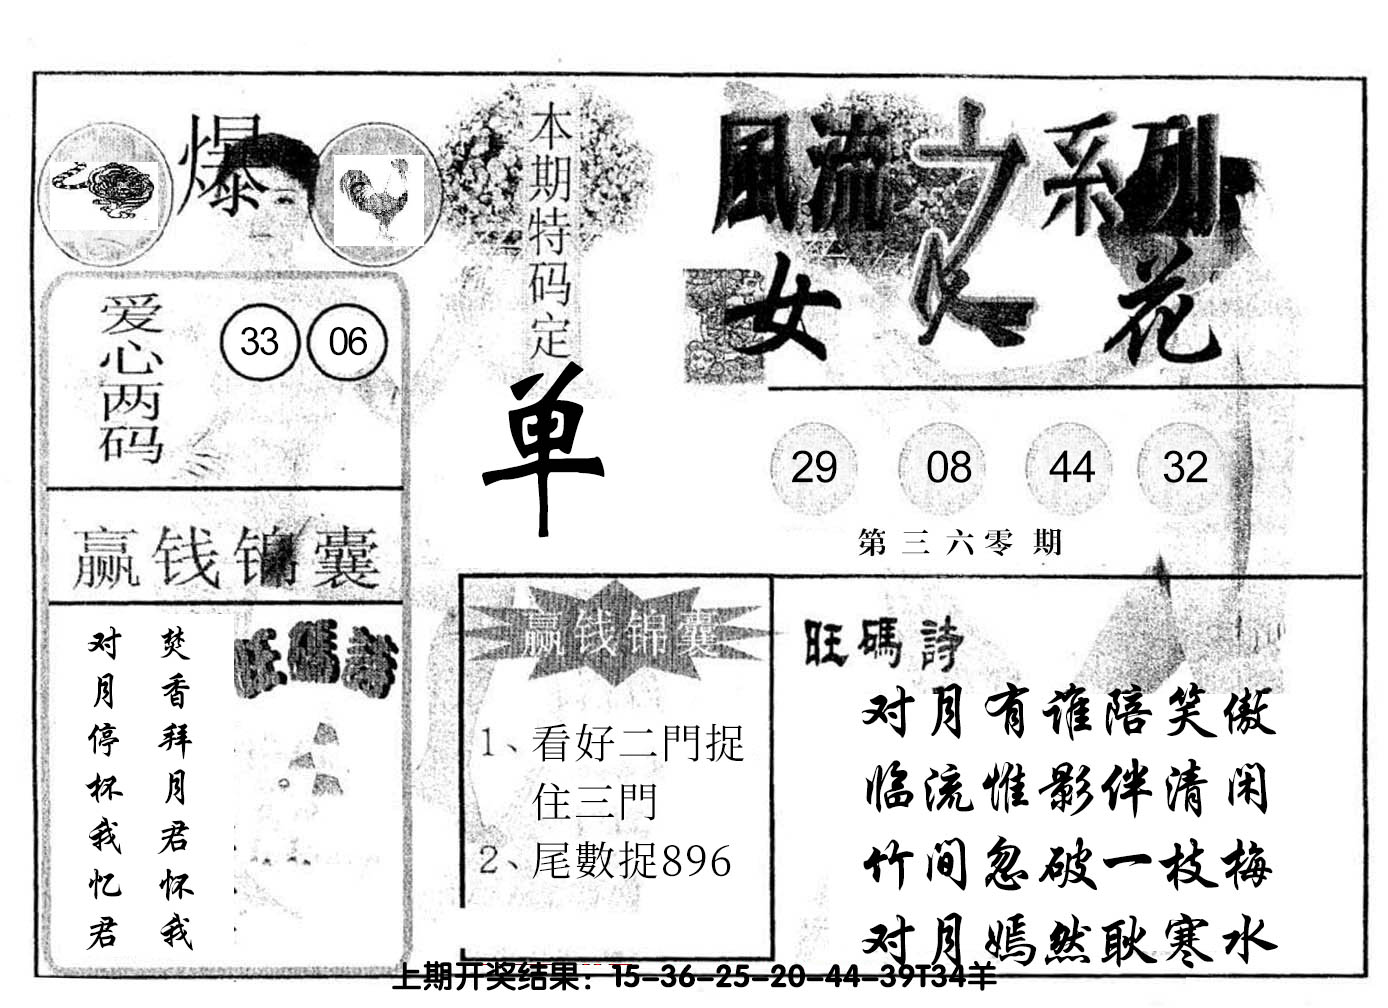 爆
本期特码定
单
風流之系列
女人花
爱心两码
33 06
29 08 44 32
第三六零期
赢钱锦囊
焚香拜月君怀我
对月停杯我忆君
旺碼詩
赢钱锦囊
1、看好二門捉
住三門
2、尾數捉896
旺碼詩
对月有谁陪笑傲
临流惟影伴清闲
竹间忽破一枝梅
对月嫣然耿寒水
上期开奖结果：15-36-25-20-44-39T34羊